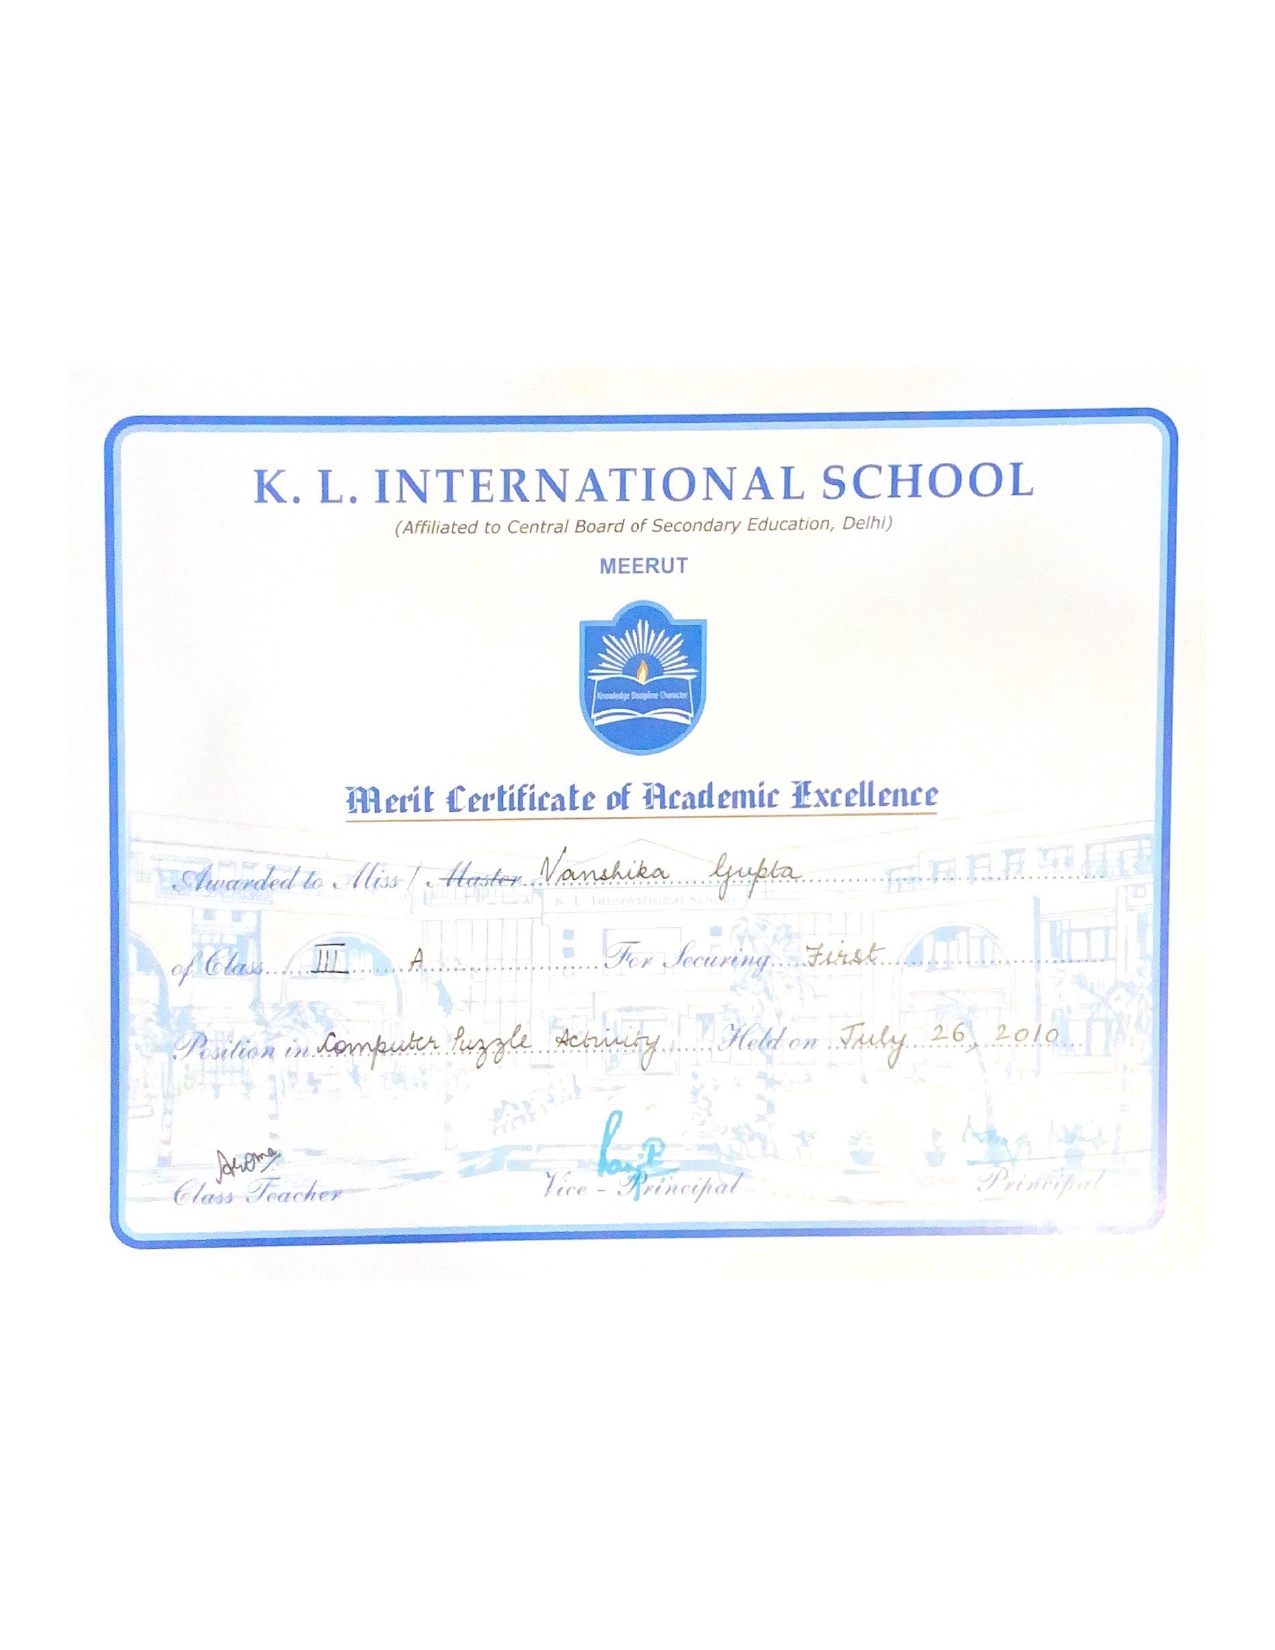 K. L. INTERNATIONAL SCHOOL
(Affiliated to Central Board of Secondary Education, Delhi)
MEERUT
Knowledge Discipline Character
Merit Certificate of Academic Excellence
Awarded to Miss / Master Vanshika Gupta
K. L. International School
of Class III A For Securing First
Position in Computer Puzzle Activity Held on July 26, 2010
Class Teacher Vice - Principal Principal